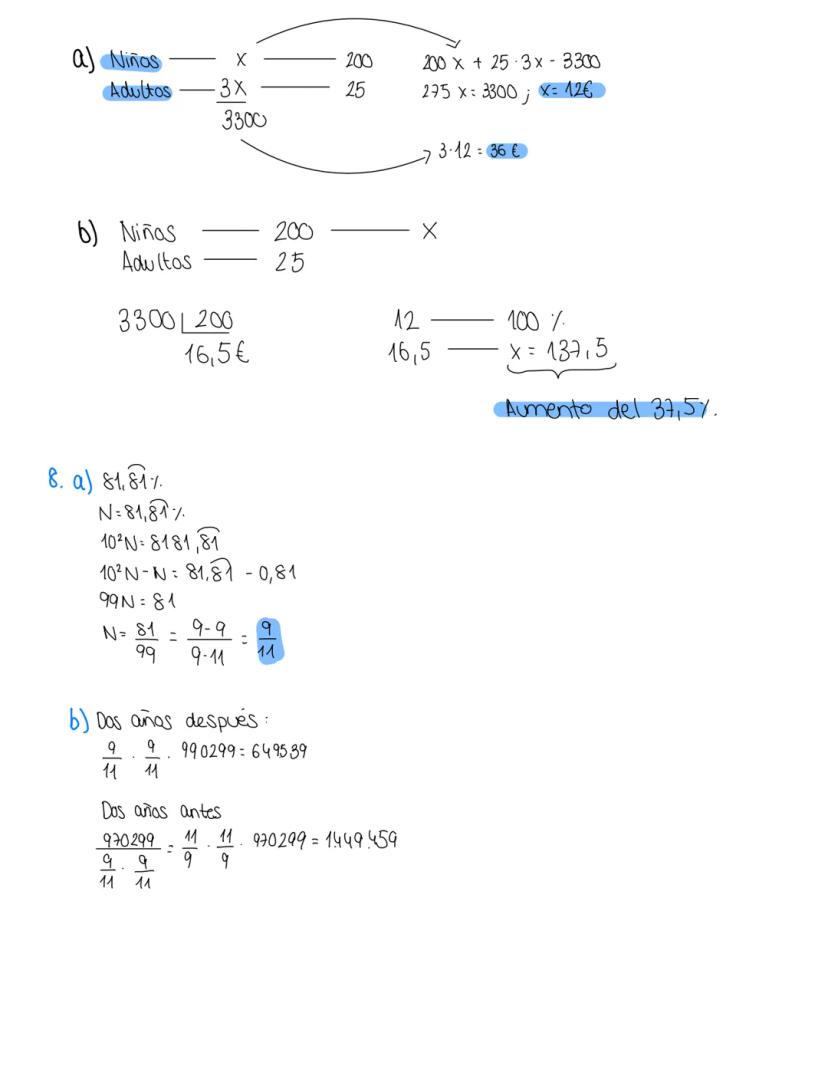 a) Niños — x — 200 200 x + 25 · 3x - 3300
Adultos — 3x — 25 275 x = 3300 ; x = 12€
3300
3·12 = 36 €
b) Niños — 200 — x
Adultos — 25
3300 | 200 12 — 100 %
16,5€ 16,5 — x = 137,5
Aumento del 37,5%.
8. a) 81,81%
N=81,81%
10²N=8181,81
10²N-N = 81,81 - 0,81
99N = 81
N = 81/99 = 9-9/9·11 = 9/11
b) Dos años después:
9/11 · 9/11 · 990299 = 649539
Dos años antes
970299/(9/11 · 9/11) = 11/9 · 11/9 · 970299 = 1449.459